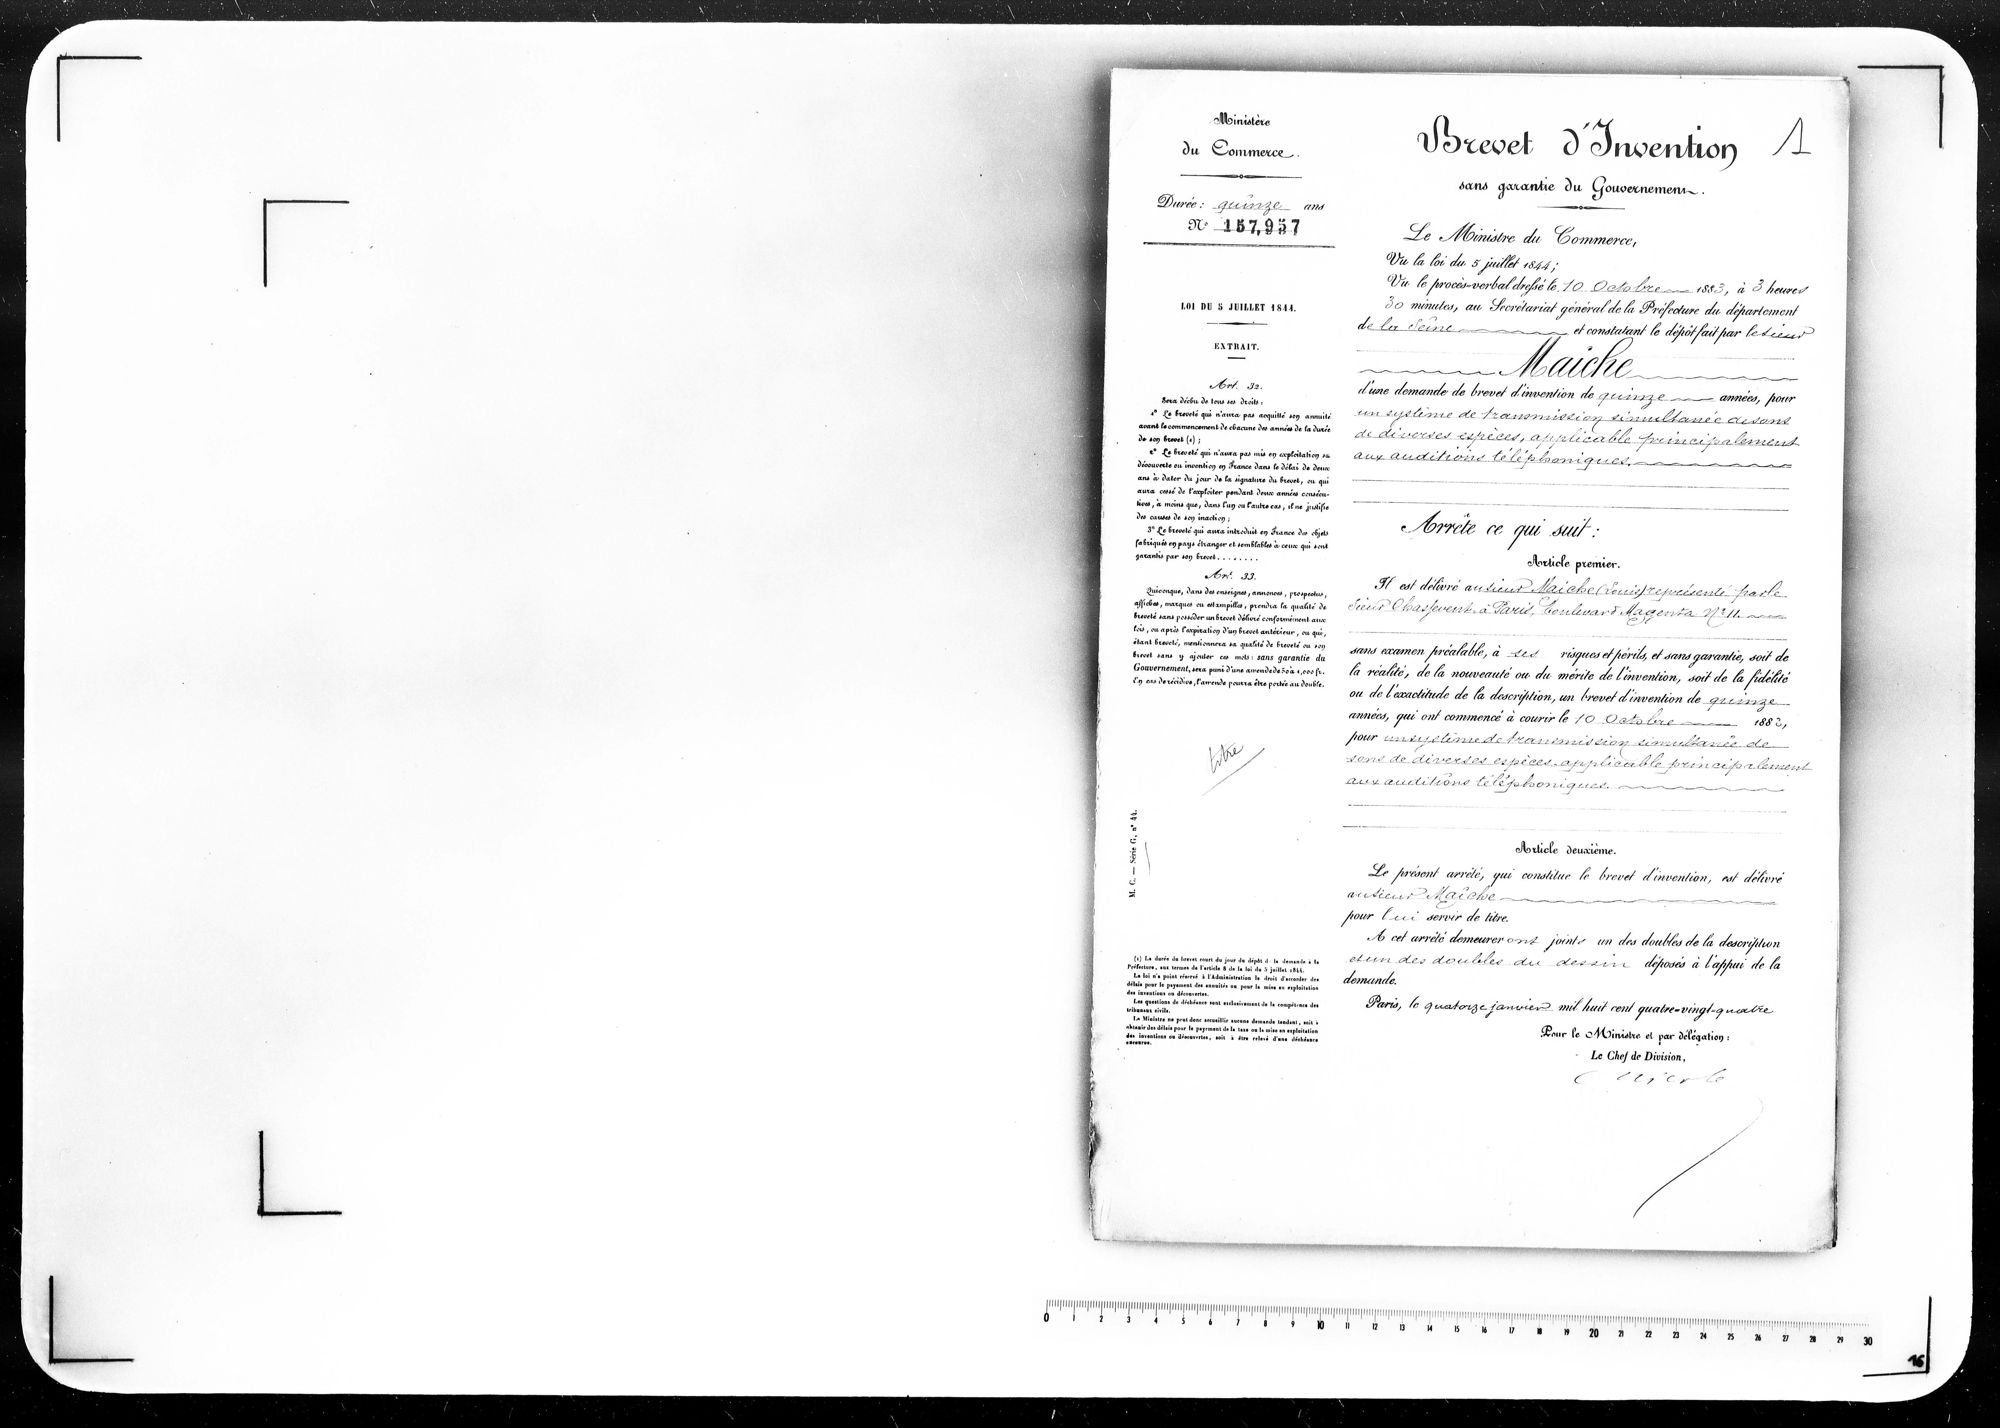 Ministère
du Commerce.
Durée : quinze ans
N° 157,957
LOI DU 5 JUILLET 1844.
EXTRAIT.
Art. 32.
Sera déchu de tous ses droits :
1° Le breveté qui n'aura pas acquitté son annuité
avant le commencement de chacune des années de la durée
de son brevet (1) ;
2° Le breveté qui n'aura pas mis en exploitation sa
découverte ou invention en France dans le délai de deux
ans à dater du jour de la signature du brevet, ou qui
aura cessé de l'exploiter pendant deux années consécu-
tives, à moins que, dans l'un ou l'autre cas, il ne justifie
des causes de son inaction ;
3° Le breveté qui aura introduit en France des objets
fabriqués en pays étranger et semblables à ceux qui sont
garantis par son brevet........
Art. 33.
Quiconque, dans des enseignes, annonces, prospectus,
affiches, marques ou estampilles, prendra la qualité de
breveté sans posséder un brevet délivré conformément aux
lois, ou après l'expiration d'un brevet antérieur, ou qui,
étant breveté, mentionnera sa qualité de breveté ou son
brevet sans y ajouter ces mots : sans garantie du
Gouvernement, sera puni d'une amende de 50 à 1,000 fr.
En cas de récidive, l'amende pourra être portée au double.
titre
M. C. — Série G, n° 44.
(1) La durée du brevet court du jour du dépôt de la demande à la
Préfecture, aux termes de l'article 8 de la loi du 5 juillet 1844.
La loi n'a point réservé à l'Administration le droit d'accorder des
délais pour le payement des annuités ou pour la mise en exploitation
des inventions ou découvertes.
Les questions de déchéance sont exclusivement de la compétence des
tribunaux civils.
Le Ministre ne peut donc accueillir aucune demande tendant, soit à
obtenir des délais pour le payement de la taxe ou la mise en exploitation
des inventions ou découvertes, soit à être relevé d'une déchéance
encourue.
Brevet d'Invention 1
sans garantie du Gouvernement.
Le Ministre du Commerce,
Vu la loi du 5 juillet 1844 ;
Vu le procès-verbal dressé le 10 Octobre 1883, à 3 heures
30 minutes, au Secrétariat général de la Préfecture du département
de la Seine et constatant le dépôt fait par le sieur
Maîche
d'une demande de brevet d'invention de quinze années, pour
un système de transmission simultanée de sons
de diverses espèces, applicable principalement
aux auditions téléphoniques.
Arrête ce qui suit :
Article premier.
Il est délivré au sieur Maîche (Louis) représenté par le
sieur Chassevent à Paris, Boulevard Magenta N° 11.
sans examen préalable, à ses risques et périls, et sans garantie, soit de
la réalité, de la nouveauté ou du mérite de l'invention, soit de la fidélité
ou de l'exactitude de la description, un brevet d'invention de quinze
années, qui ont commencé à courir le 10 Octobre 1883,
pour un système de transmission simultanée de
sons de diverses espèces applicable principalement
aux auditions téléphoniques.
Article deuxième.
Le présent arrêté, qui constitue le brevet d'invention, est délivré
au sieur Maîche
pour lui servir de titre.
A cet arrêté demeureront joints un des doubles de la description
et un des doubles du dessin déposés à l'appui de la
demande.
Paris, le quatorze janvier mil huit cent quatre-vingt-quatre
Pour le Ministre et par délégation :
Le Chef de Division,
0 1 2 3 4 5 6 7 8 9 10 11 12 13 14 15 16 17 18 19 20 21 22 23 24 25 26 27 28 29 30
16